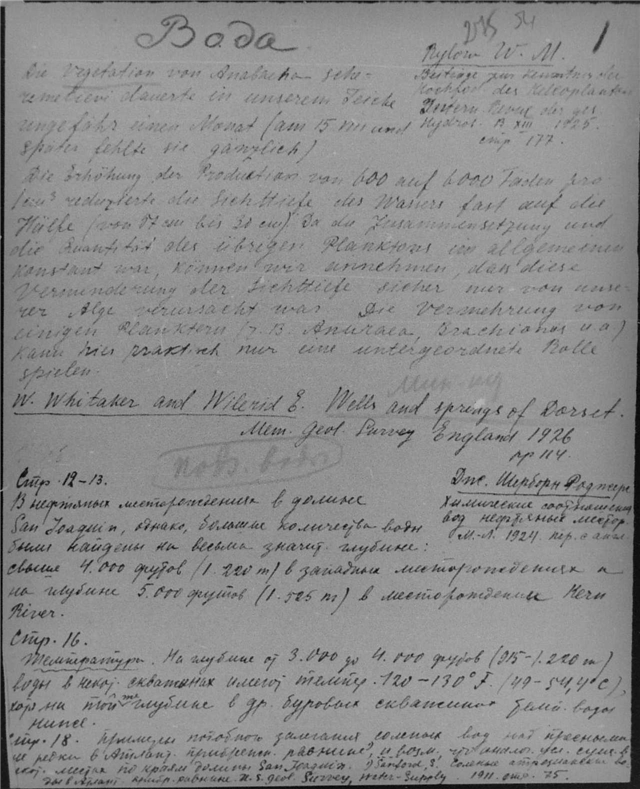 Вода
1
Rylow W. M.
Beiträge zur Kenntnis der
des Heleoplankton
Revue der ges
Hydrol. B XIII 1925.
стр 177.
Die Vegetation von Anabaena sche-
remetievi dauerte in unserem Teiche
ungefähr einen Monat (am 15 VIII und
später fehlte sie gänzlich)
Die Erhöhung der Production von 600 auf 6000 Faden pro
1 cm³ reduzierte die Sichttiefe des Wassers fast auf die
Hälfte (von cm bis 30 cm). Da die Zusammensetzung und
die Quantität des übrigen Planktons im allgemeinen
konstant war, können wir annehmen, dass diese
Verminderung der Sichttiefe sicher nur von unse-
rer Alge verursacht war. Die Vermehrung von
einigen Planktern (z. B. Anuraea Brachionus u. a)
kann hier praktisch nur eine untergeordnete Rolle
spielen.
W. Whitaker and Wilfrid E. Wells and springs of Dorset.
Mem. Geol. Survey England 1926
pp 114.
подз. воды
Стр. 12-13.
Дж. Шерборн Роджерс
Химические соотношения
вод нефтяных местор.
М.-Л. 1924. пер. с англ
В нефтяных месторождениях в долине
San Joaquin, однако, большие количества воды
были найдены на весьма значит. глубине:
свыше 4.000 футов (1.220 m) в западных месторождениях и
на глубине 5.000 футов (1.525 m) в месторождении Kern
River.
Стр. 16.
Температура. На глубине от 3.000 до 4.000 футов (915-1.220 m)
воды в некот. скважинах имеют темпер. 120-130° F. (49-54,4° C),
хотя на той же глубине в др. буровых скважинах темп. воды
ниже.
Стр. 18. Примеры подобного залегания соленых вод над пресными
не редки в Атлант. прибрежн. равнине, и возм. что аналог. усл. сущ. в
некот. местах по краям долины San Joaquin. Sanford, S. Соленые артезианские во-
ды в Атлант. прибр. равнине. U.S. geol. Survey, Water-Supply 1911. стр. 75.